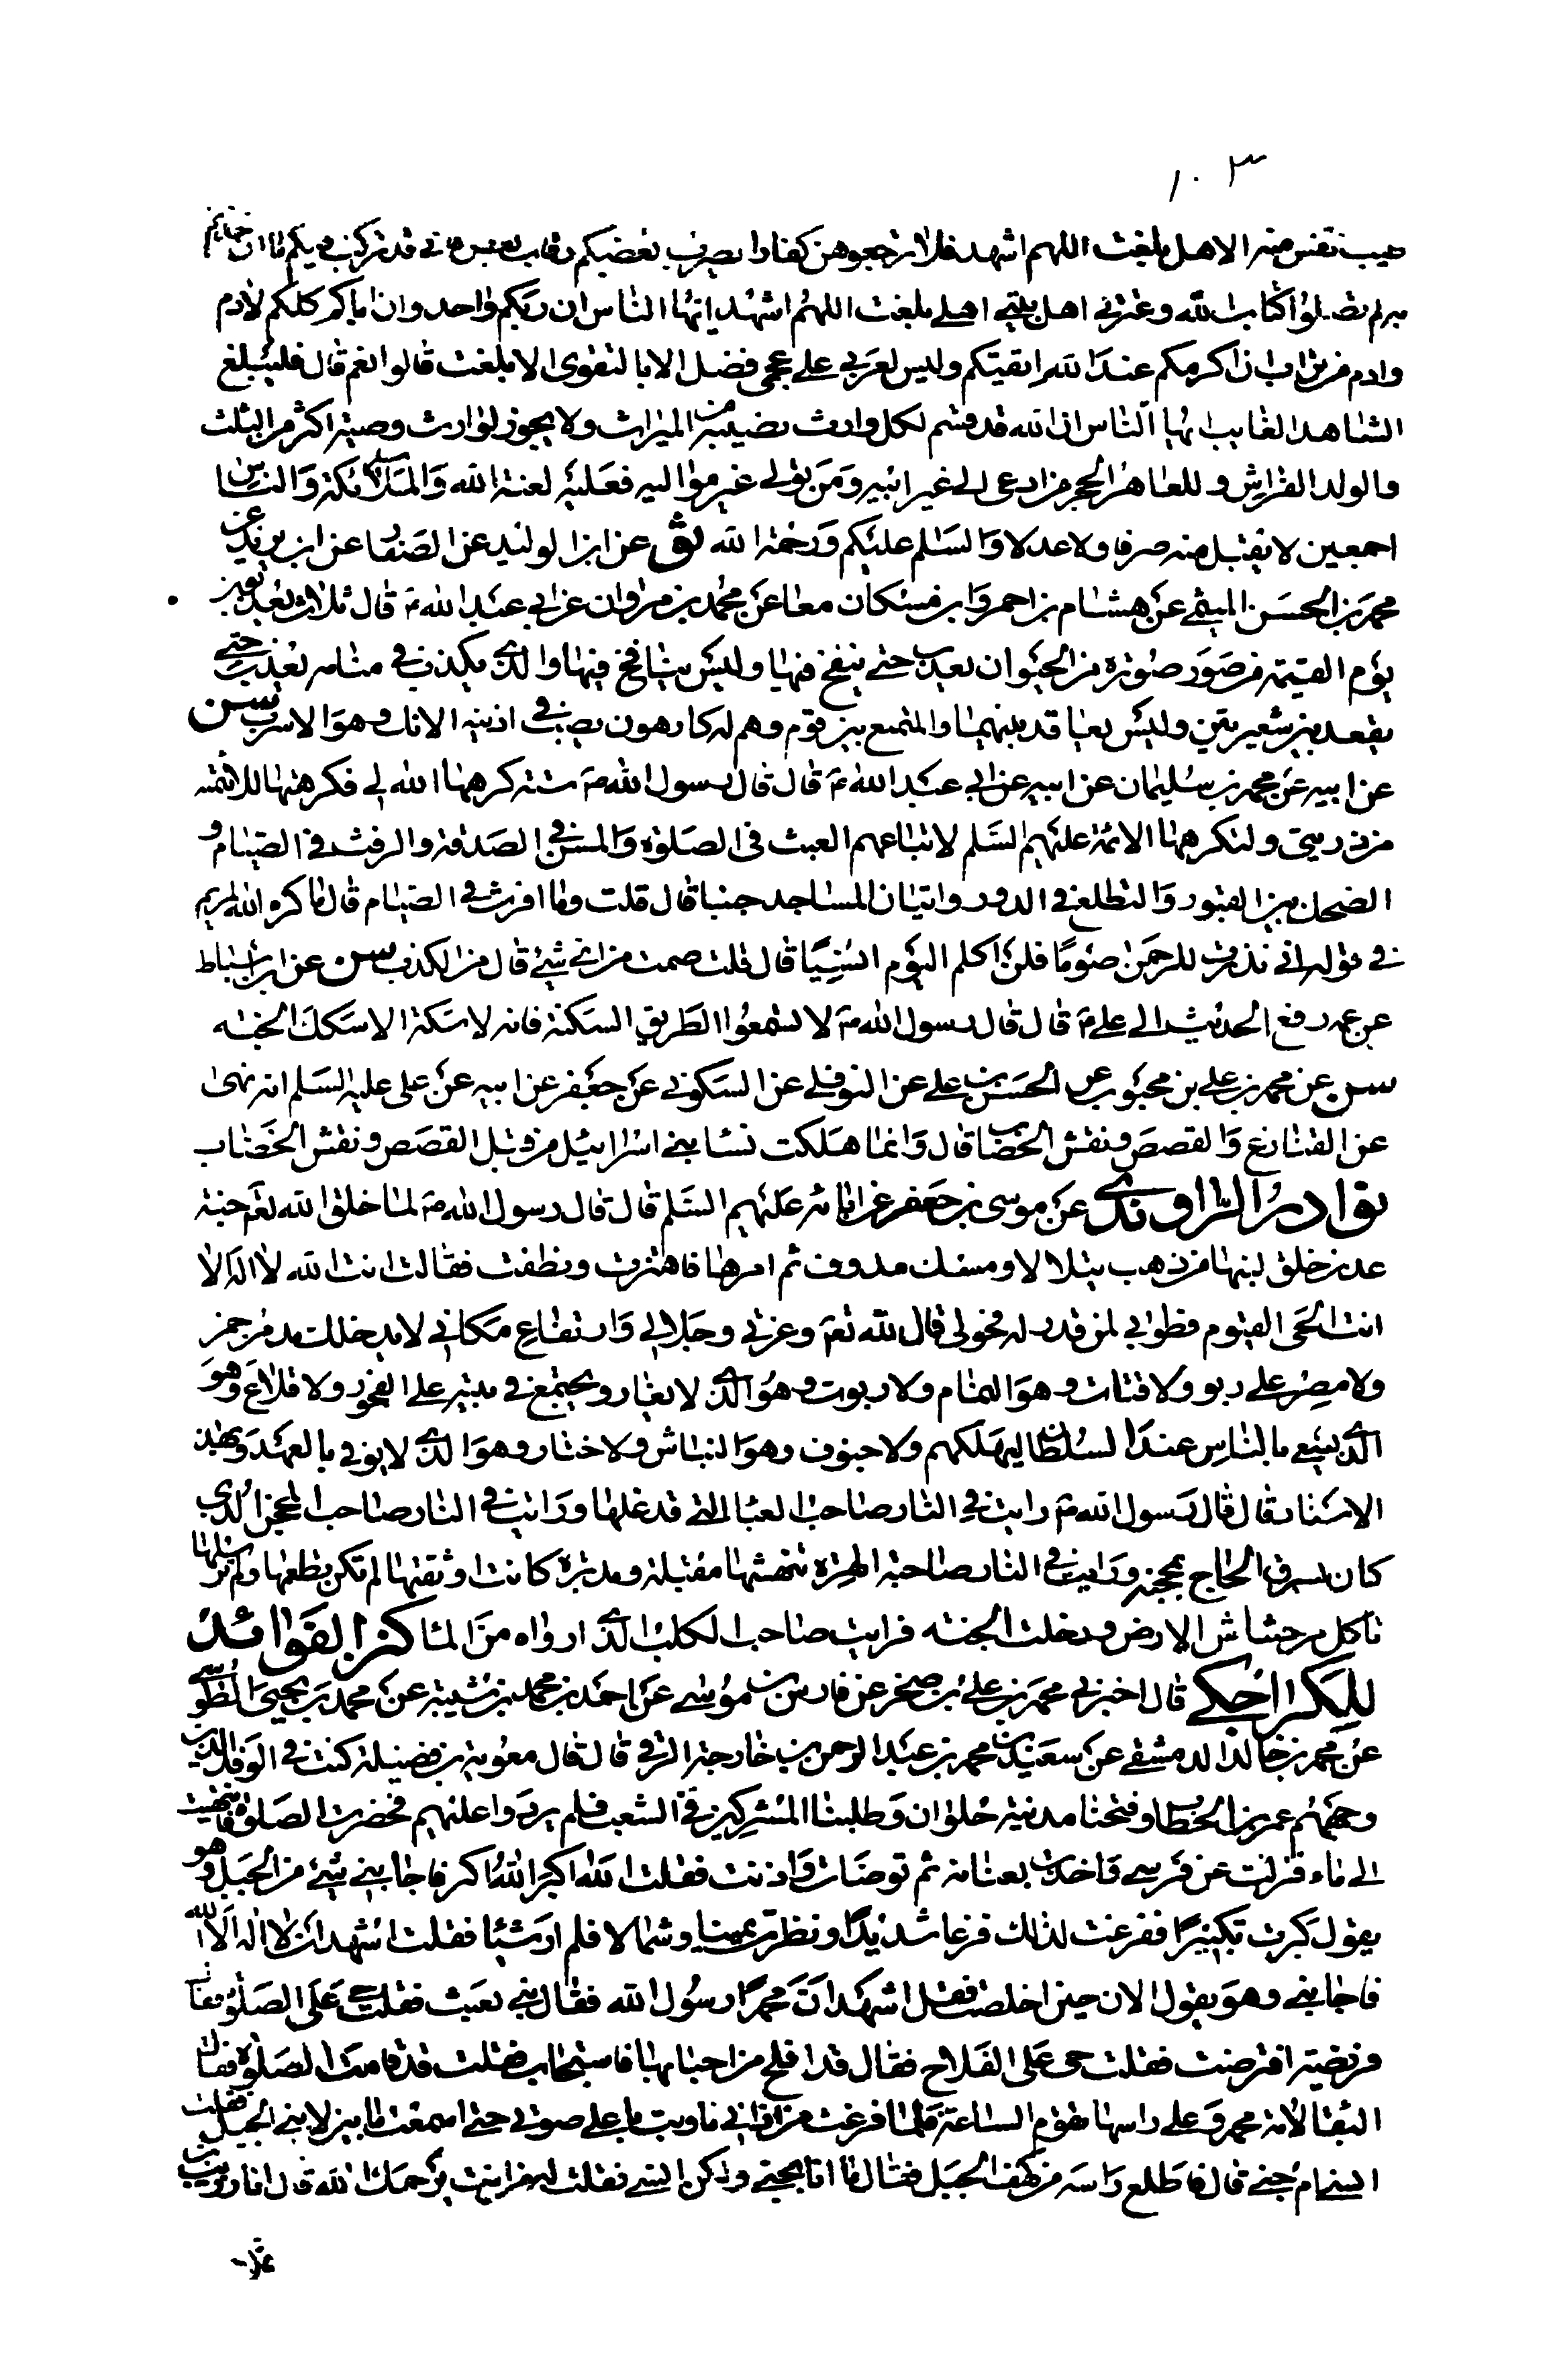 ١٠٣
طيب نفس منه الا هل بلغت اللهم اشهد فلا ترجعوا من كفارا يضرب بعضكم رقاب بعض فاني قد تركت فيكم ما ان اخذتم
به لن تضلوا كتاب الله وعترتي اهل بيتي الا هل بلغت اللهم اشهد ايها الناس ان ربكم واحد وان اباكم كلكم لادم
وادم من تراب ان اكرمكم عند الله اتقيكم وليس لعربي على عجمي فضل الا بالتقوى الا بلغت قالوا نعم قال فليبلغ
الشاهد الغايب ايها الناس ان الله قد قسم لكل وارث نصيبه من الميراث ولا يجوز لوارث وصية اكثر من الثلث
والولد الفراش وللعاهر الحجر من ادعى الى غير ابيه ومن تولى غير مواليه فعليه لعنة الله والملائكة والناس
اجمعين لا يقبل منه صرفا ولا عدلا والسلم عليكم ورحمة الله ثق عن ابن الوليد عن الصفار عن ابن يزيد عن
محمد بن الحسن الميثمي عن هشام بن احمر وابن مسكان معا عن محمد بن مروان عن ابي عبد الله ع قال ثلاث يعذبون
يوم القيمة من صور صورة من الحيوان يعذب حتى ينفخ فيها وليس بنافخ فيها والذي يكذب في منامه يعذب حتى
يقعد بين شعيرتين وليس بعاقد بينهما والمتمع بين قوم وهم له كارهون يصب في اذنيه الانك وهو الاسرب سن
عن ابيه عن محمد بن سليمان عن ابيه عن ابي عبد الله ع قال قال رسول الله ص ستة كرهها الله لي فكرهتها للائمة
من ذريتي ولتكرهها الائمة عليهم السلم لاتباعهم العبث في الصلوة والمن في الصدقة والرفث في الصيام و
الضحك بين القبور والتطلع في الدور واتيان المساجد جنبا قال قلت وما الرفث في الصيام قال ما كره الله لمريم
في قوله اني نذرت للرحمن صوما فلن اكلم اليوم انسيا قال قلت صمت من اي شيئ قال من الكذب سن عن ابن اسباط
عن عمه رفع الحديث الى علي ع قال قال رسول الله ص لا تسموا الطريق السكة فانه لا سكة الا سكك الجنة
سن عن محمد بن علي بن محبوب عن الحسن بن علي عن النوفلي عن السكوني عن جعفر عن ابيه عن علي عليه السلم انه نهى
عن القنازع والقصص ونقش الخضاب قال وانما هلكت نسا بني اسرائيل من قبل القصص ونقش الخضاب
نوادر الراوندي عن موسى بن جعفر عن ابائه عليهم السلم قال قال رسول الله ص لما خلق الله تعم جنة
عدن خلق لبنها من ذهب يتلالا ومسك مدوف ثم امرها فاهتزت ونطقت فقالت انت الله لا اله الا
انت الحي القيوم فطوبى لمن قدر له دخولي قال الله تعم وعزتي وجلالي وارتفاع مكاني لا يدخلك مدمن خمر
ولا مصر على ربو ولا فتات وهو النمام ولا ديوث وهو الذي لا يغار ويجتمع في بيته على الفجور ولا قلاع وهو
الذي يسعى بالناس عند السلطان ليهلكهم ولا حيوف وهو النباش ولا ختار وهو الذي لا يوفي بالعهد وبهذا
الاسناد قال قال رسول الله ص رايت في النار صاحب العبا التي قد غلها ورايت في النار صاحب المحجن الذي
كان يسرق الحاج بمحجنه ورايت في النار صاحبة الهرة تنهشها مقبلة ومدبرة كانت اوثقتها لم تكن تطعمها ولم ترسلها
تاكل من حشاش الارض ودخلت الجنة فرايت صاحب الكلب الذي ارواه من الما كنز الفوائد
للكراجكي قال اخبرني محمد بن علي بن صخر عن فارس بن موسى عن احمد بن محمد بن شيبة عن محمد بن يحيى الطوسي
عن محمد بن خالد الدمشقي عن سعيد بن محمد بن عبد الرحمن بن خارجة الرقي قال قال معوية بن فضيلة كنت في الوفد الذين
وجههم عمر بن الخطاب وفتحنا مدينة حلوان وطلبنا المشركين في الشعب فلم يردوا عليهم فحضرت الصلوة فانتهيت
الى ماء فنزلت عن فرسي واخذت بعنانه ثم توضات واذنت فقلت الله اكبر الله اكبر فاجابني شيئ من الجبل وهو
يقول كبرت تكبيرا ففزعت لذلك فزعا شديدا ونظرت يمينا وشمالا فلم ار شيئا فقلت اشهد ان لا اله الا الله
فاجابني وهو يقول الان حين اخلصت فقلت اشهد ان محمدا رسول الله فقال نبي بعث فقلت حي على الصلوة فقال
فريضة افترضت فقلت حي على الفلاح فقال قد افلح من اجابها فاستجاب فقلت قد قامت الصلوة فقال
البقا لامة محمد وعلى راسها تقوم الساعة فلما فرغت من اذاني ناديت باعلى صوتي حتى اسمعت ما بين لابتي الجبل فقلت
انسي ام جني قال فاطلع راسه من كهف الجبل فقال ما انا بجني ولكن انسي فقلت له من انت يرحمك الله قال انا رويب بن